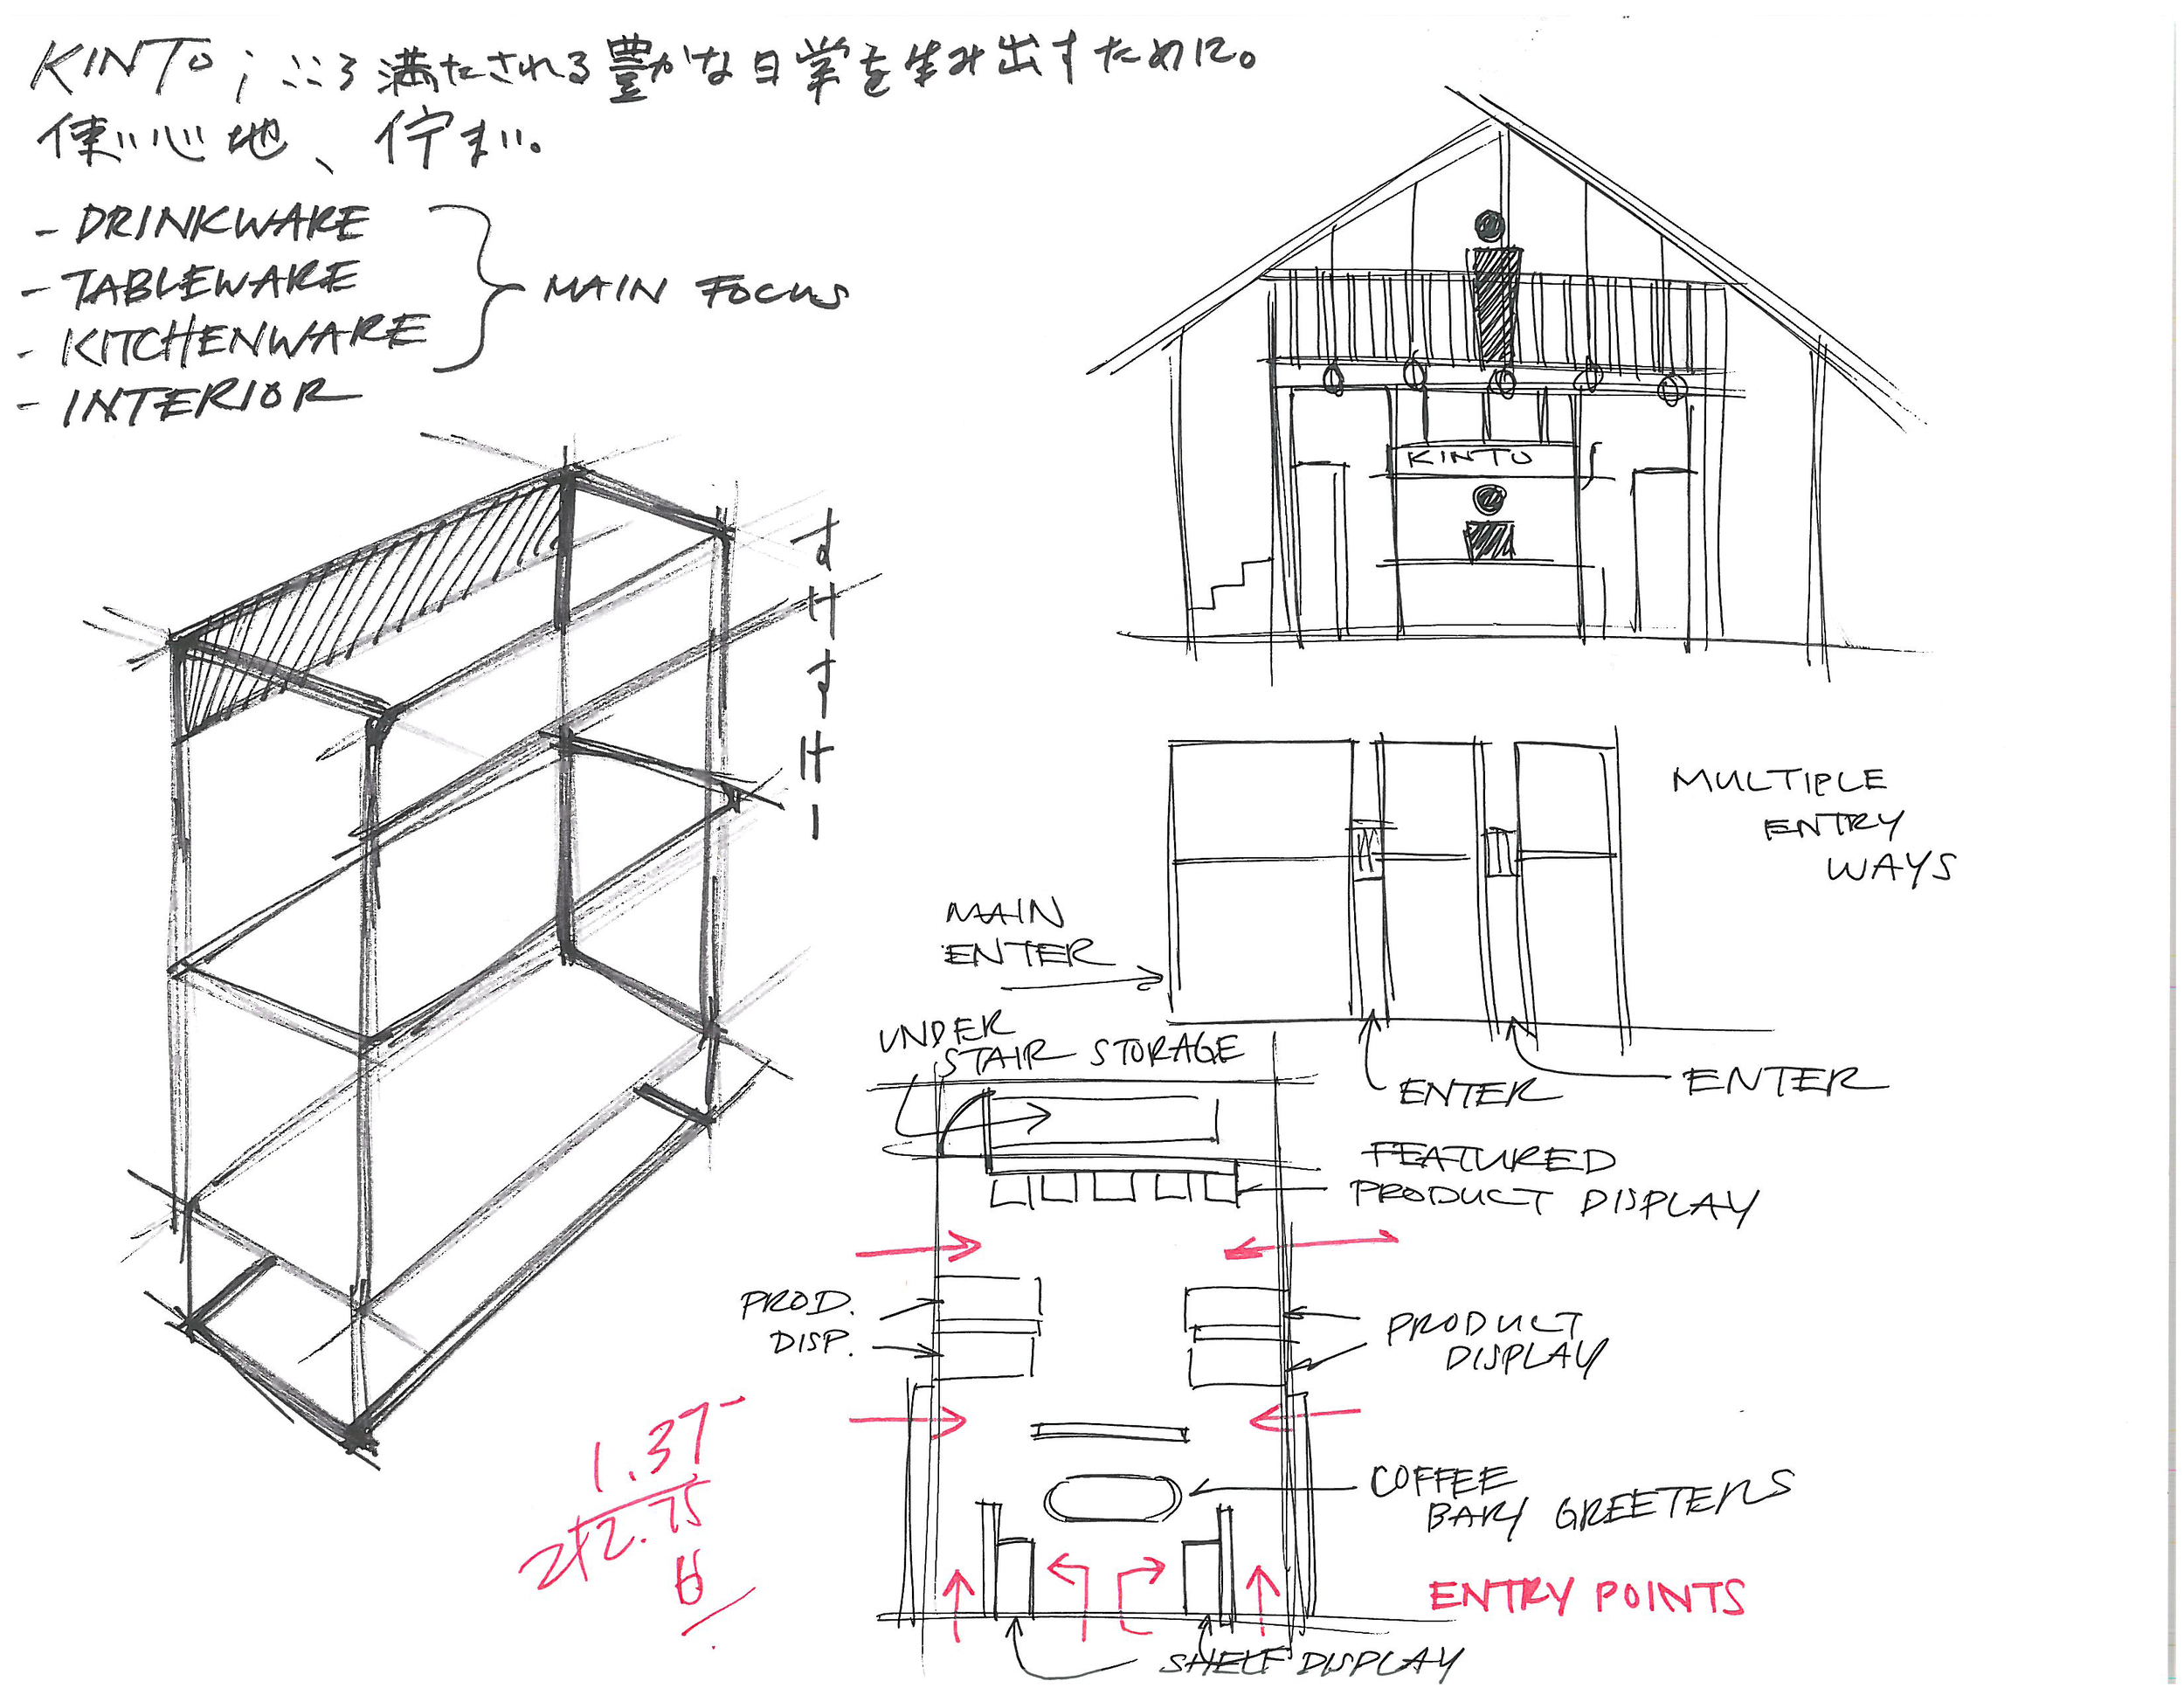 KINTO ; こころ満たされる豊かな日常を生み出すために。
使い心地、佇まい。
- DRINKWARE
- TABLEWARE
- KITCHENWARE
- INTERIOR
MAIN FOCUS
すけすけー
KINTO
MULTIPLE
ENTRY
WAYS
MAIN
ENTER
ENTER
ENTER
UNDER
STAIR STORAGE
FEATURED
PRODUCT DISPLAY
PROD.
DISP.
PRODUCT
DISPLAY
1.37
2.75
COFFEE
BAR/ GREETERS
ENTRY POINTS
SHELF DISPLAY